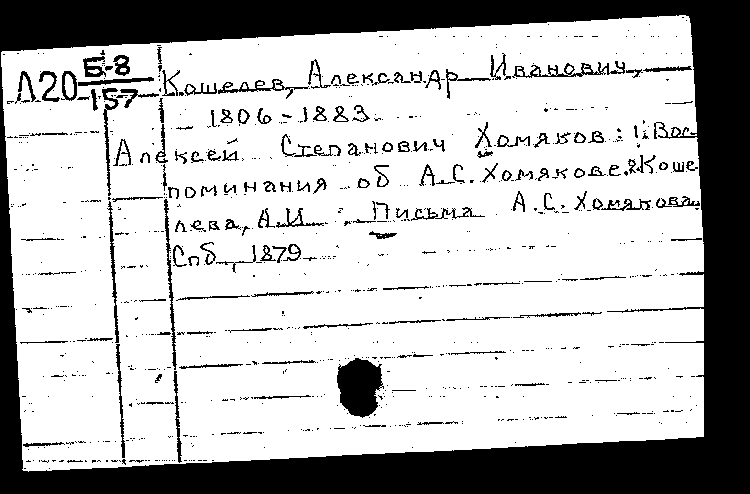 Л20 Б-8
157
Кошелев, Александр Иванович,
1806-1883.
Алексей Степанович Хомяков: 1. Вос-
поминания об А.С. Хомякове. 2. Коше-
лева, А.И. Письма А.С. Хомякова.
Спб, 1879.